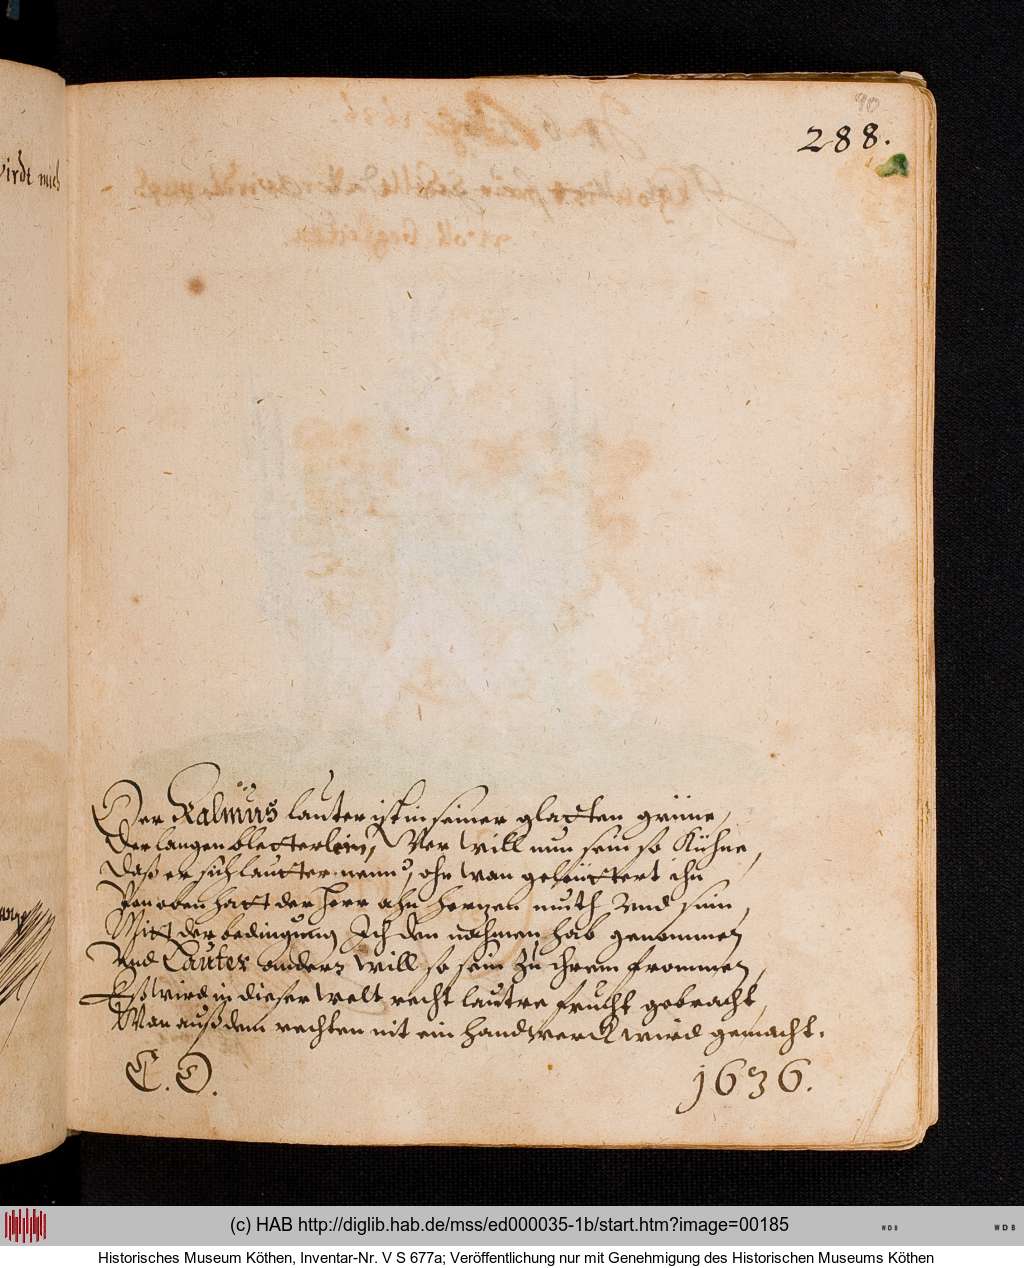 wirdt mich
90
288.
Der Kalmüs lauter ist in seiner glatten grüne,
Der langen bletterlein, Wer will nun sein so Kühne,
Daß er sich lautter nenn', ohn wan geleuttert ihn
Von oben hatt der Herr ahn hertzen muth vnd sinn,
Mitt der bedingung Ich den nahmen hab genommen
Vnd Lauter anders will so sein zu ihrem frommen,
Eß wird in dieser welt recht lautre frucht gebracht,
Wan auß dem rechten nit ein handwerck wird gemacht.
C. O. 1636.
(c) HAB http://diglib.hab.de/mss/ed000035-1b/start.htm?image=00185
WDB
WDB
Historisches Museum Köthen, Inventar-Nr. V S 677a; Veröffentlichung nur mit Genehmigung des Historischen Museums Köthen